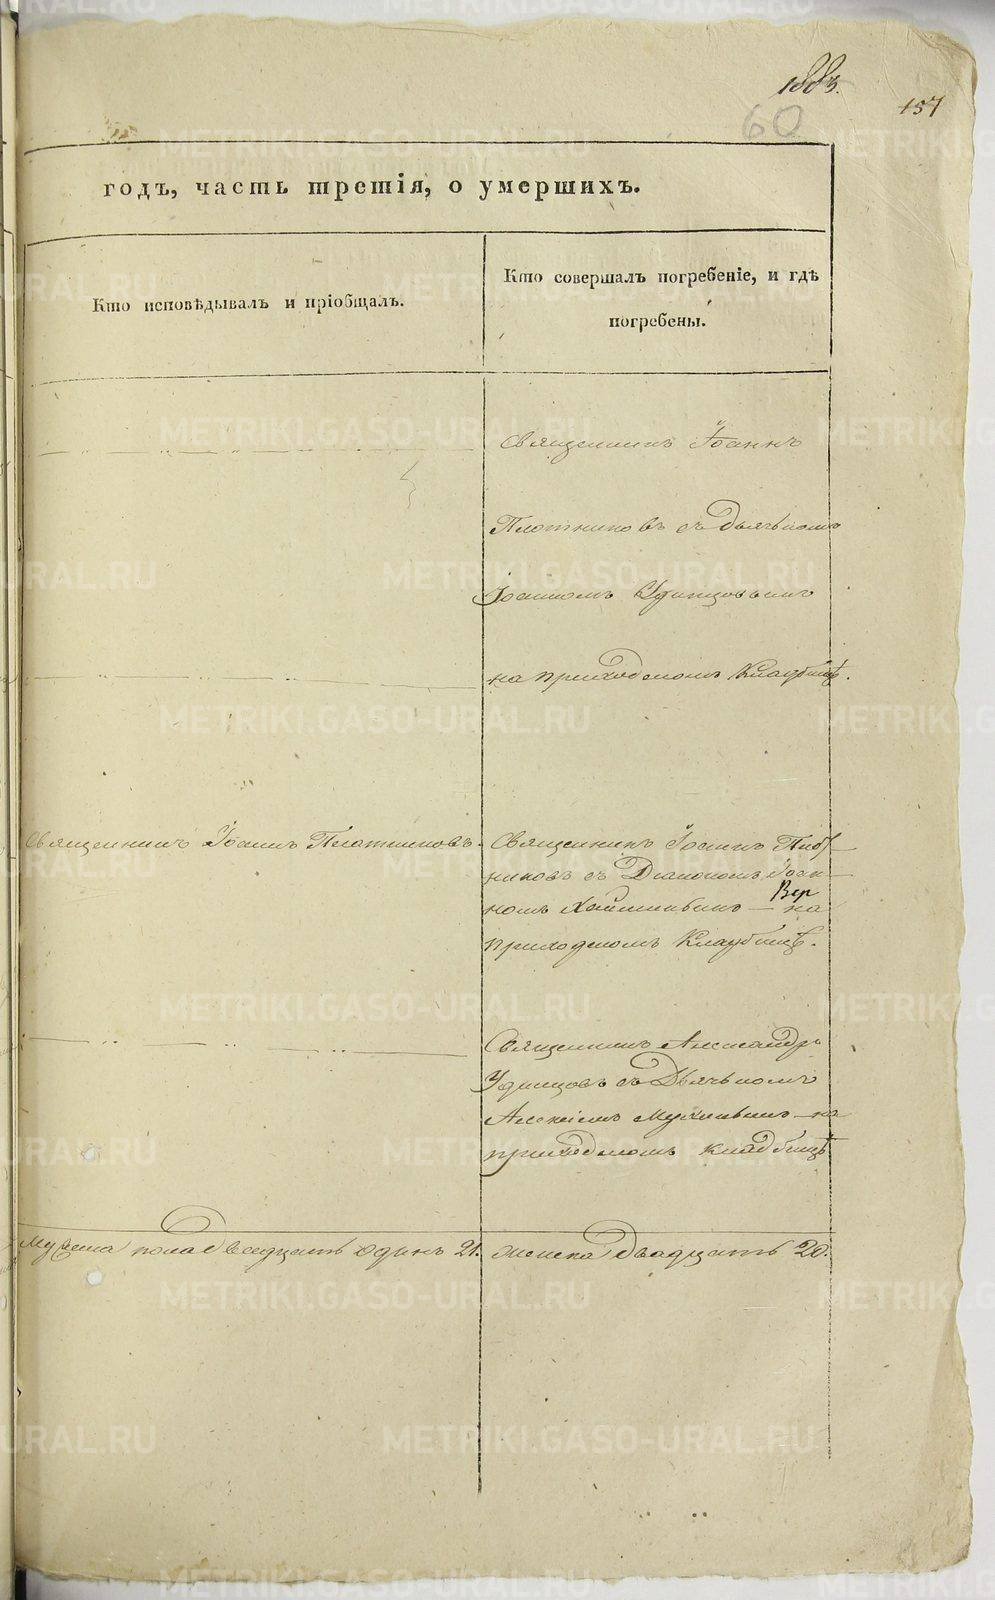 1883.
157
60
годъ, часть третія, о умершихъ.
Кто исповѣдывалъ и пріобщалъ.
Кто совершалъ погребеніе, и гдѣ
погребены.
Священникъ Іоаннъ
Плотниковъ съ дьячкомъ
Іоанномъ Удинцовымъ
на приходскомъ кладбищѣ.
Священникъ Іоаннъ Плотниковъ.
Священникъ Іоаннъ
никовъ съ Діакономъ Іоан-
номъ на
приходскомъ кладбищѣ.
Священникъ Александръ
Удинцовъ съ Дьячкомъ
Алексіемъ на
приходскомъ кладбищѣ
Мужеска пола двадцать одинъ 21. женска двадцать 20.
METRIKI.GASO-URAL.RU